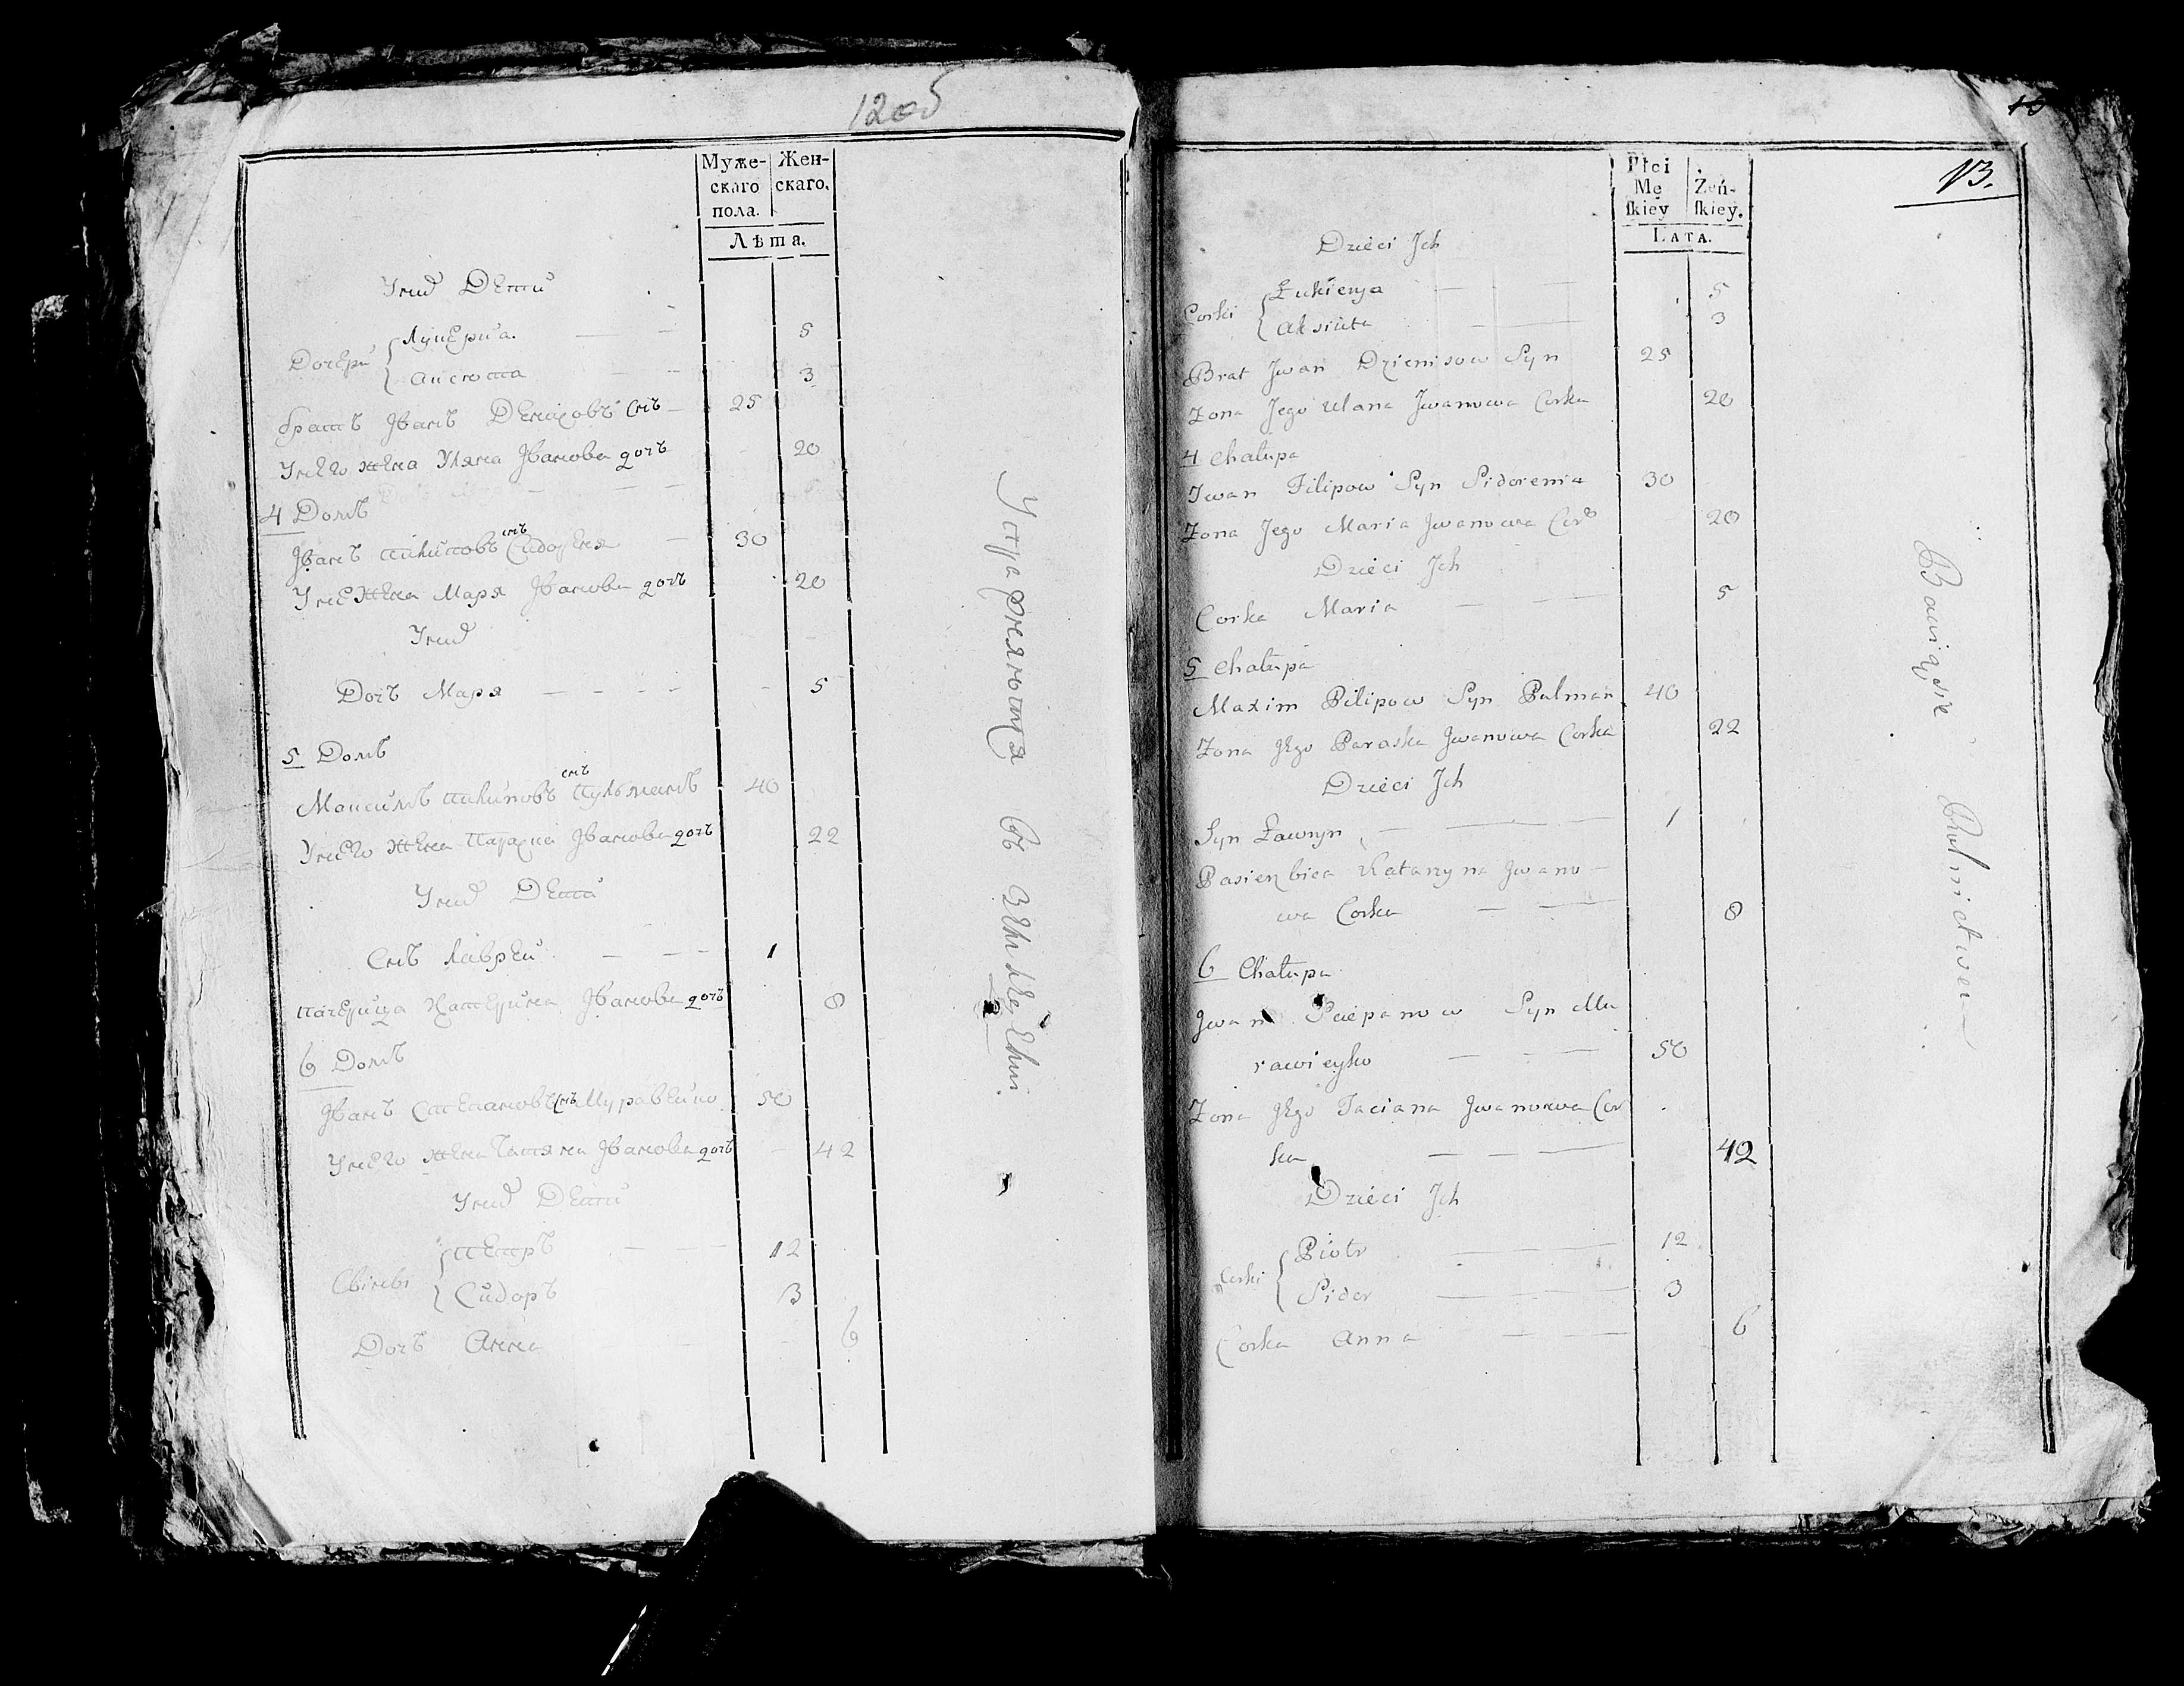 12об
Муже-
скаго
пола.
Жен-
скаго.
Лѣта.
Унид Дети
Дочери
Лукериа. 5
Аксюта 3
братъ Іванъ Денисовъ снъ 25
Унего жена Уляна Іванова дочъ 20
4 Домъ
Іванъ Пилиповъ снъ Сидореня 30
Уне жена Маря Іванова дочъ 20
Унид
Дочъ Маря 5
5 Домъ
Максимъ Пилиповъ снъ Пульманъ 40
Унего жена Параска Іванова дочъ 22
Унид Дети
Снъ Лаврен 1
Пачерица Катерина Іванова дочъ 8
6 Домъ
Іванъ Степановъ снъ Муравейко 50
Унего жена Татяна Іванова дочъ 42
Унид Дети
Петръ 12
Сидоръ 3
Дочъ Анна 6
13.
Płci
Mę
ſkiey
Żeń-
ſkiey.
LATA.
Dzieci Jch
Corki
Łukierya 5
Aksiuta 3
Brat Jwan Dzienisow Syn 25
Zona Jego Ulana Jwanowa Corka 20
4 Chałupa
Jwan Filipow Syn Sidorenia 30
Zona Jego Maria Jwanowa Cor 20
Dzieci Jch
Corka Maria 5
5 Chałupa
Maxim Pilipow Syn Pulman 40
Zona Jego Paraska Jwanowa Corka 22
Dzieci Jch
Syn Ławryn 1
Pasierzbica Katarzyna Jwano
wa Corka 8
6 Chałupa
Jwan Sciepanow Syn Mu
rawieyko 50
Zona Jego Taciana Jwanowa Cor
ka 42
Dzieci Jch
Corki
Piotr 12
Sidor 3
Corka Anna 6